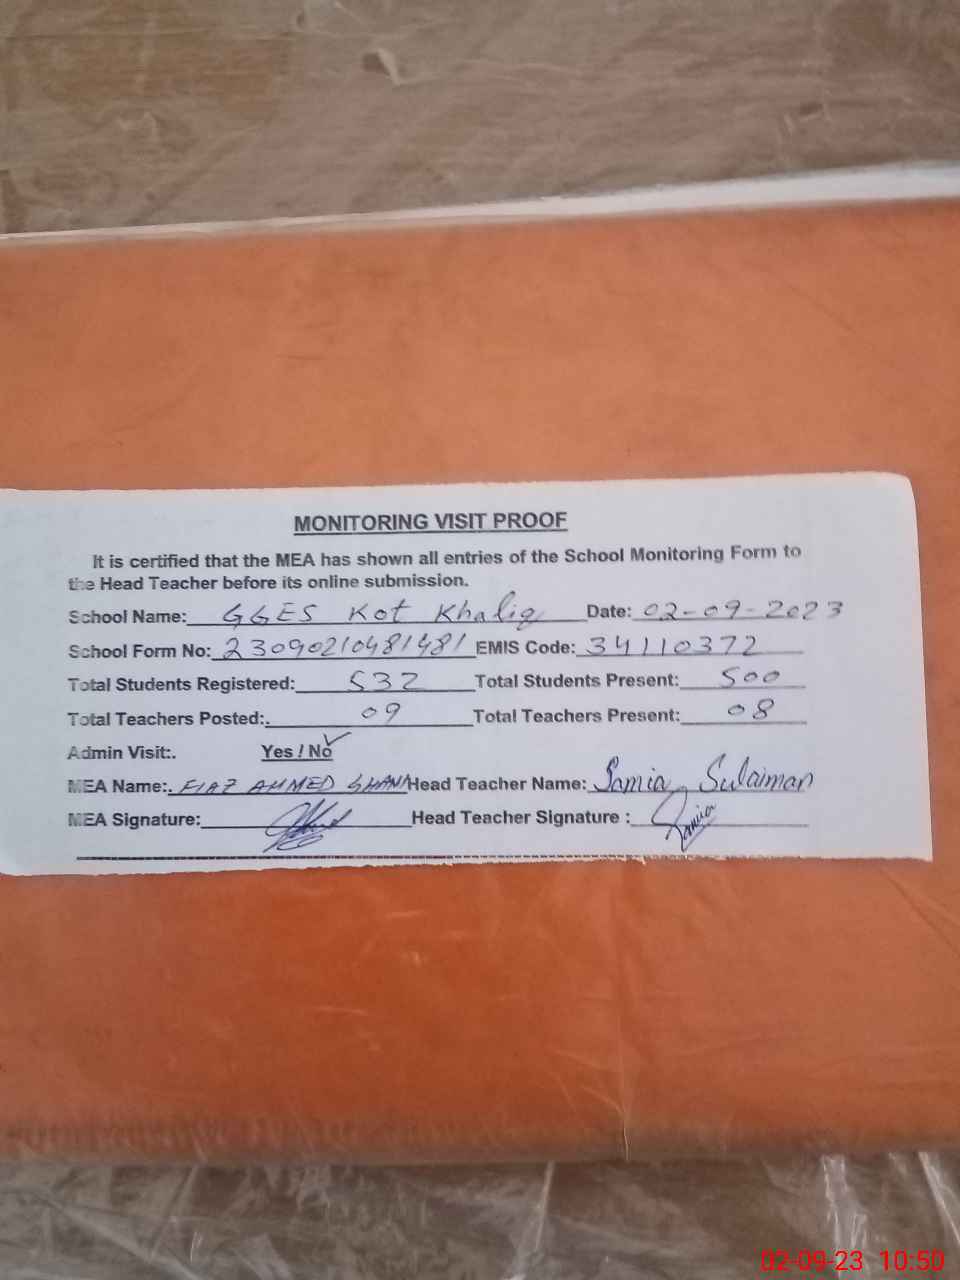 MONITORING VISIT PROOF
It is certified that the MEA has shown all entries of the School Monitoring Form to
the Head Teacher before its online submission.
School Name: GGES Kot Khaliq Date: 02-09-2023
School Form No: 23090210481481 EMIS Code: 34110372
Total Students Registered: 532 Total Students Present: 500
Total Teachers Posted:. 09 Total Teachers Present: 08
Admin Visit:. Yes / No ✓
MEA Name:. FIAZ AHMED GHANI Head Teacher Name: Samia Sulaiman
MEA Signature: Head Teacher Signature : Samia
02-09-23 10:50